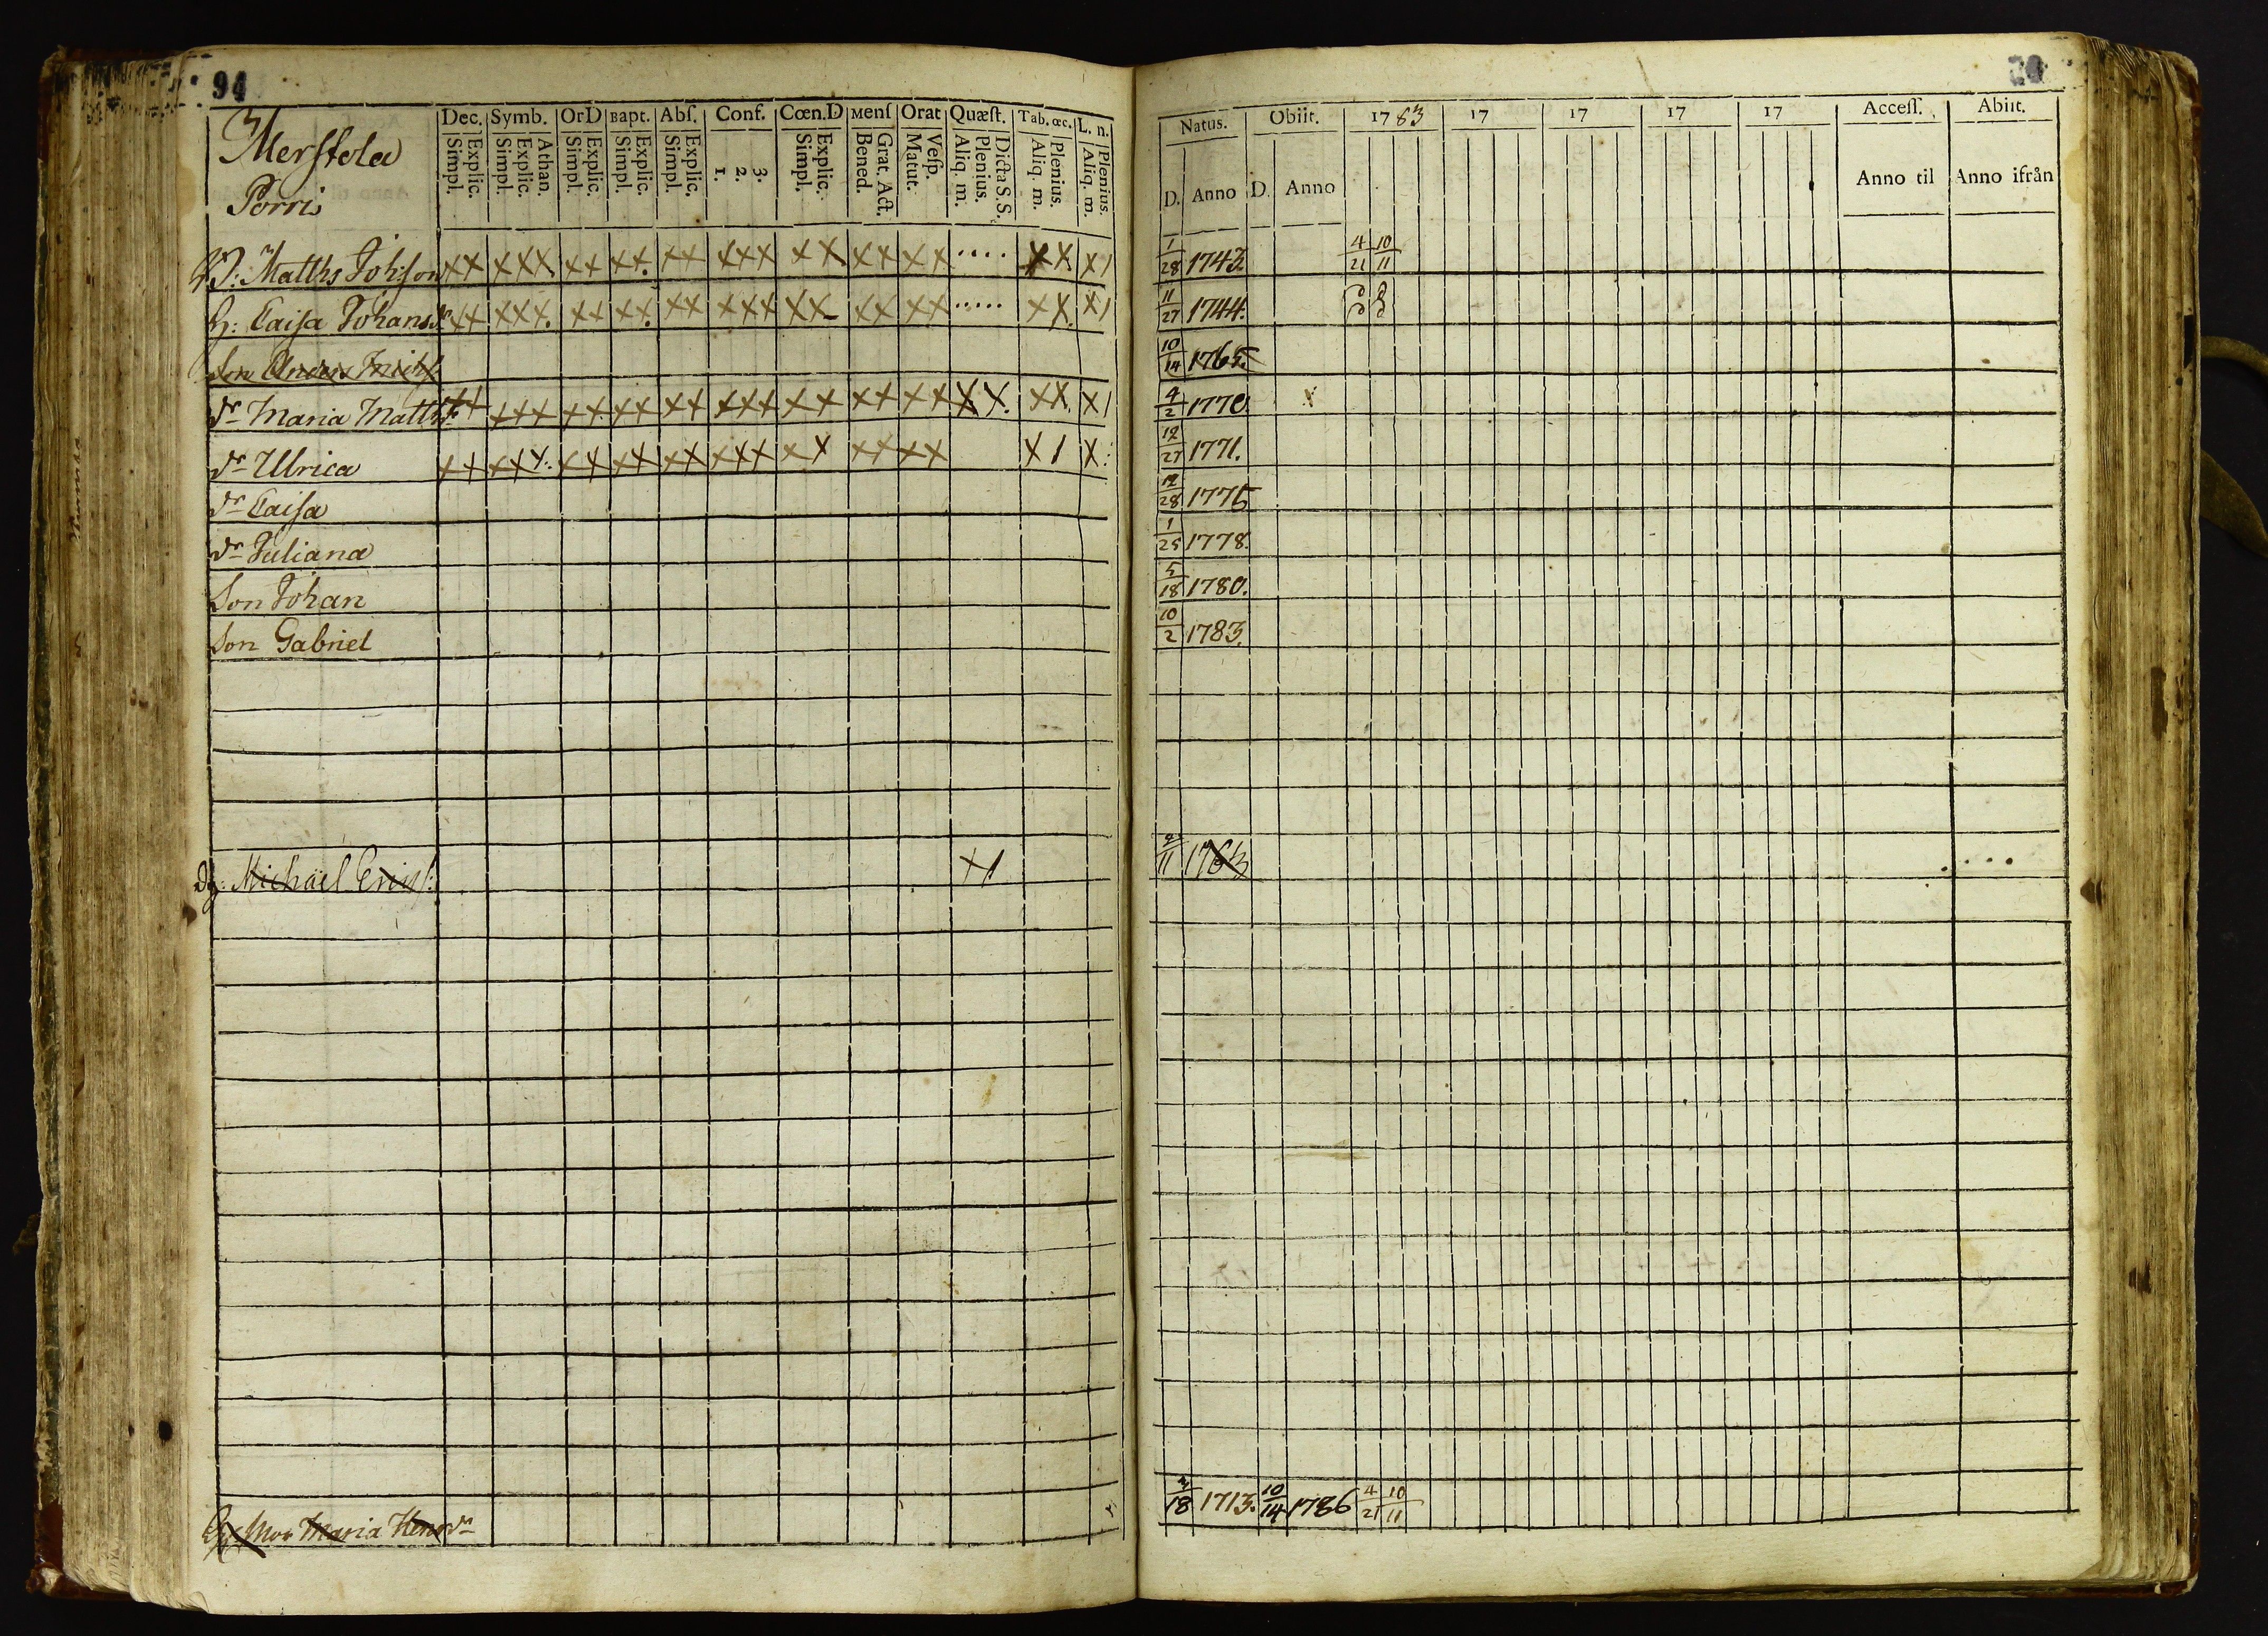 94
Merstola
Porri
Dec. Symb. OrD Bapt. Abſ. Conf. Cœn.D Menſ Orat Quæſt. Tab. œc. L. n.
Explic. Simpl. Athan. Explic. Simpl. Explic. Simpl. Explic. Simpl. Explic. Simpl. 3. 2. 1. Explic. Simpl. Grat. Act. Bened. Veſp. Matut. Dicta S. S. Plenius. Aliq. m. Plenius. Aliq. m. Plenius. Aliq. m.
Natus. Obiit. 1783 17 17 17 17 Acceſſ. Abiit.
D. Anno D. Anno Anno til Anno ifrån
Matths Johſson xx xxx xx xx xx xxx xx xx xx ..... xx x1 1/28 1743. 4/21 10/11
H: Caiſa Johansdr xx xxx. xx xx. xx xxx xx xx xx ..... xx. x1 11/27 1744.
Son 10/14 1765
dr Maria Matths xx xxx xx xx xx xxx xx xx xx xx. xx. x1 4/2 1770. x
dr Ulrica xx xxx. xx xx xx xxx xx xx xx x1 x: 12/27 1771.
dr Caiſa 12/28 1775
dr Juliana 1/25 1778.
Son Johan 5/18 1780.
Son Gabriel 10/2 1783.
Dg: Michaël Ericſ: x1 1763 ....
Mor Maria Hensdr 18 1713. 10/14 1786 4/21 10/11